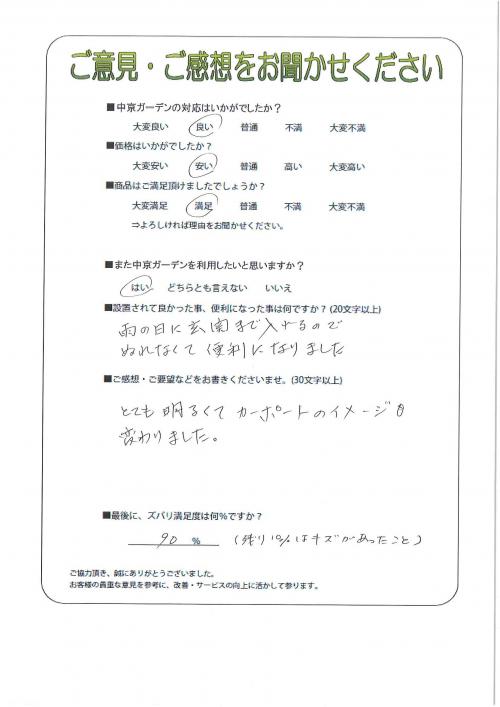 ご意見・ご感想をお聞かせください
■中京ガーデンの対応はいかがでしたか？
大変良い 良い 普通 不満 大変不満
■価格はいかがでしたか？
大変安い 安い 普通 高い 大変高い
■商品はご満足頂けましたでしょうか？
大変満足 満足 普通 不満 大変不満
⇒よろしければ理由をお聞かせください。
■また中京ガーデンを利用したいと思いますか？
はい どちらとも言えない いいえ
■設置されて良かった事、便利になった事は何ですか？(20文字以上)
雨の日に玄関まで入れるので
ぬれなくて便利になりました
■ご感想・ご要望などをお書きくださいませ。(30文字以上)
とても明るくてカーポートのイメージも
変わりました。
■最後に、ズバリ満足度は何％ですか？
90 ％ (残り10％はキズがあったこと)
ご協力頂き、誠にありがとうございました。
お客様の貴重な意見を参考に、改善・サービスの向上に活かして参ります。